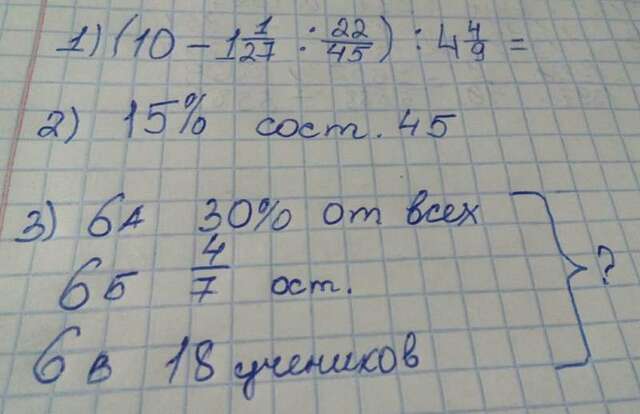 1) (10 - 1 1/27 : 22/45) : 4 4/9 =
2) 15% сост. 45
3) 6А 30% от всех
6Б 4/7 ост.
6В 18 учеников
?